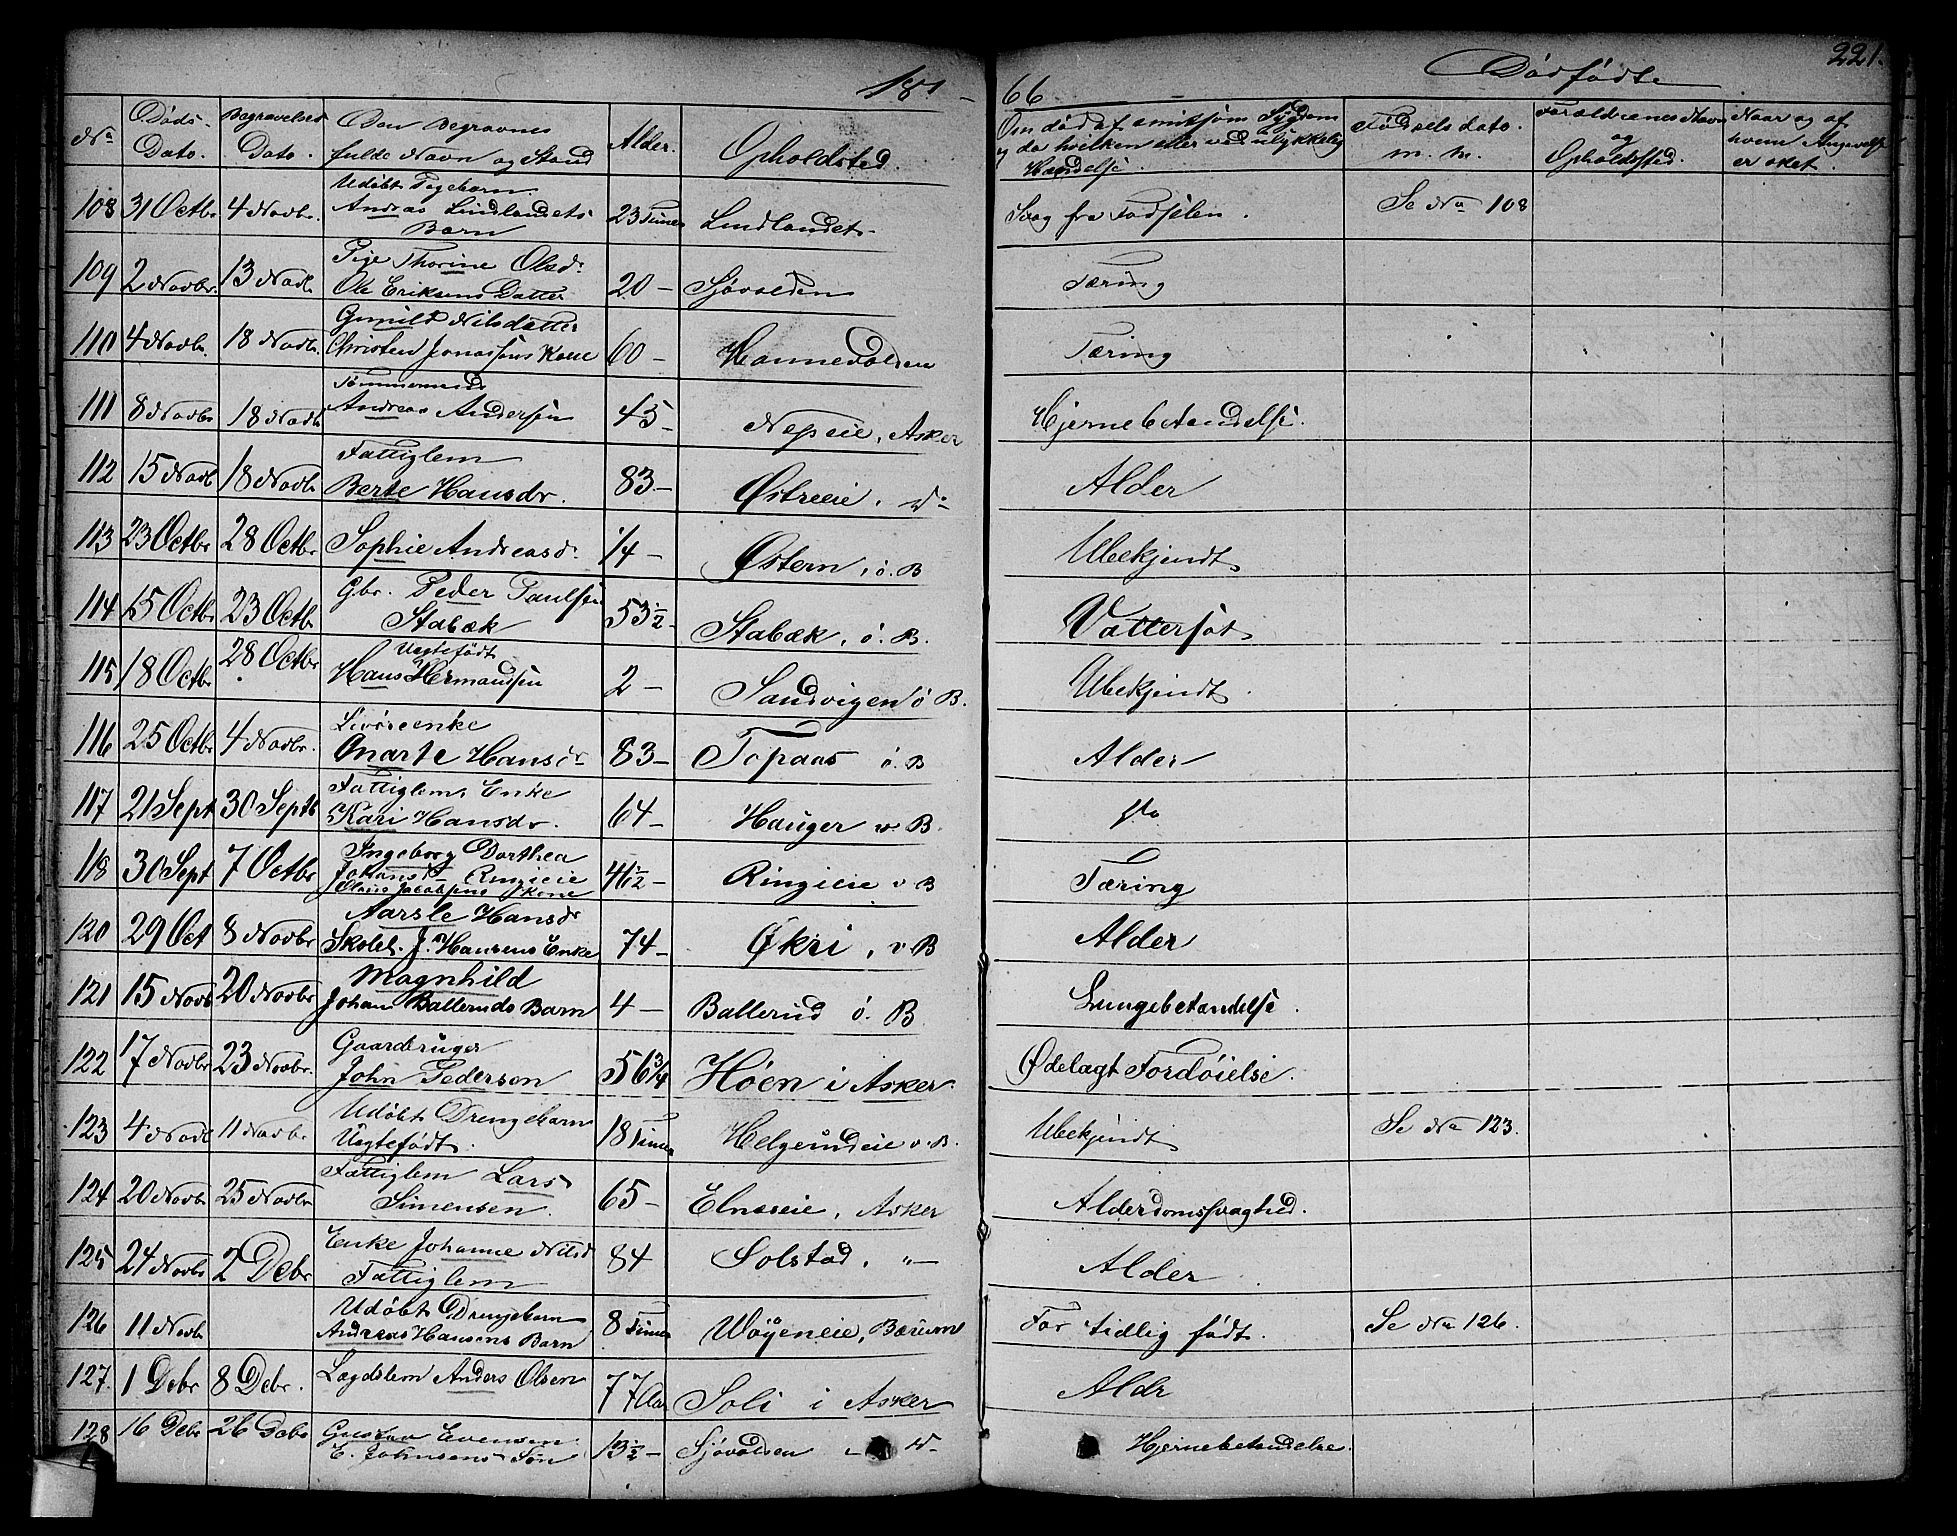 221.
18 66 Dødfødte
No Døds- Dato. Begravelses Dato. Den Begravnes fulde Navn og Stand Alder. Opholdsted. Om død af smitsom Sygdom og da hvilken eller ved ulykkelig Hændelse. Fødsels dato. m. m. Forældrenes Navn og Opholdssted. Naar og af hvem Angivelse er sket.
108 31 Octbr 4 Novbr. Udøbt Pigebarn Andreas Lindlandets Barn 23 Timer Lindlandet Svag fra Fødselen. Se No 108
109 2 Novbr. 13 Novb Pige Thorine Olsd. Ole Eriksens Datter 20 – Sjøvolden Tæring
110 4 Novbr. 18 Novbr. Gunild Nilsdatter Christen Jonassens Kone 60 – Hannevolden Tæring
111 8 Novbr 18 Novb Tømmermand Andreas Andersen 45 – Neseie, Asker Hjernebetændelse.
112 15 Novb 18 Novbr Fattiglem Berte Hansdr. 83 – Østreeie, do Alder
113 23 Octbr 28 Octbr Sophie Andreasd. 14 – Østern, ø. B Ubekjendt
114 15 Octbr 23 Octbr Gbr. Peder Paulsen Stabæk 53 1/2 – Stabæk, ø. B. Vattersot
115 18 Octbr 28 Octbr Uægtefødt Hans Hermandsen 2 – Sandvigen ø B. Ubekjendt.
116 25 Octbr 4 Novbr. Livøreenke Marte Hansdr 83 – Topaas ø. B Alder
117 21 Sept 30 Septb Fattiglem, Enke Kari Hansdr. 64 – Hauger v B. do
118 30 Sept 7 Octbr Ingeborg Dorthea Johansd Ringieie Jacobsens Kone 41 1/2 – Ringieie v B Tæring
120 29 Oct 8 Novbr Aarsle Hansdr Skolel. J. Hansens Enke 74 – Økri, v B Alder
121 15 Novb 20 Novbr Magnhild Johan Balleruds Barn 4 – Ballerud ø. B Lungebetændelse.
122 17 Novbr 23 Novbr. Gaardbruger John Pedersen 56 3/4 Høen i Asker. Ødelagt Fordøielse.
123 4 Novb 11 Novbr Udøbt Drengebarn Uægtefødt. 18 Timer Helgerudeie v. B. Ubekjendt Se No 123.
124 20 Novbr 25 Novbr Fattiglem Lars Simensen. 65 – Elnæseie, Asker Alderdomssvaghed.
125 24 Novbr 2 Debr Enke Johanne Nilsd Fattiglem 84 Solstad, " – Alder
126 11 Novbr Udøbt Drengebarn Andreas Hansens Barn 8 Timer Wøyeneie, Bærum For tidlig født. Se No 126.
127. 1 Debr 8 Debr. Lægdslem Anders Olsen 77 Aar Soli i Asker Aldr
128 16 Debr 26 Debr Gustav Evensen E. Johnsens Søn 13 1/2 – Sjøvolden do Hjernebetændelse.